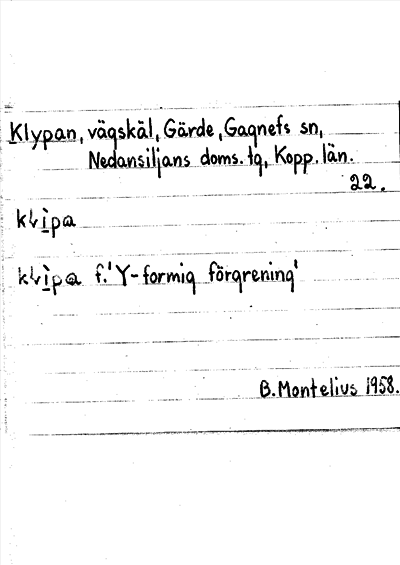 Klypan, vägskäl, Gärde, Gagnefs sn,
Nedansiljans doms. tg, Kopp. län.
22.
f. 'Y-formig förgrening'
B. Montelius 1958.